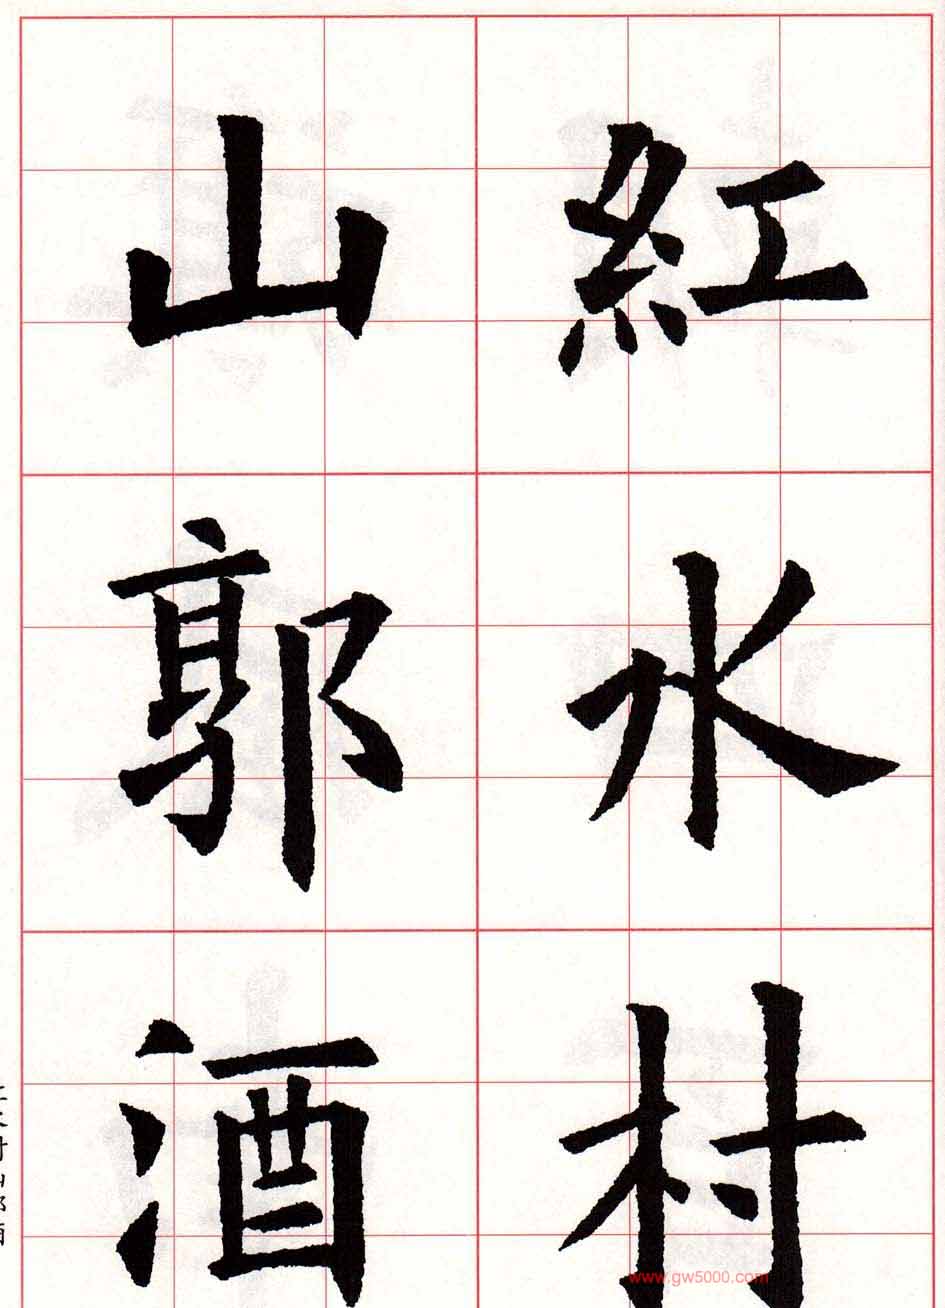 紅水村
山郭酒
www.gw5000.com